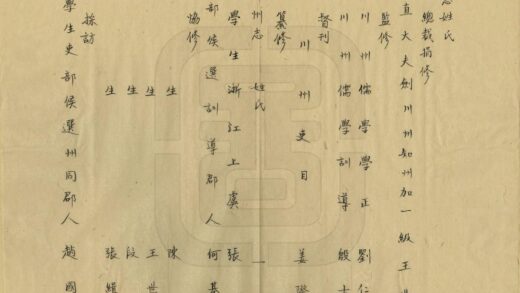 志姓氏
總裁捐修
直大夫劍川州知州加一級王世
監修
川州儒學學正劉仁
川州儒學訓導殷士
督刊
川州吏目姜
纂修
州志 姓氏 一
學生浙江上虞張
部候選訓導郡人何基
協修
生陳
生王世
生段
生張維
採訪
學生吏部候選州同郡人趙國